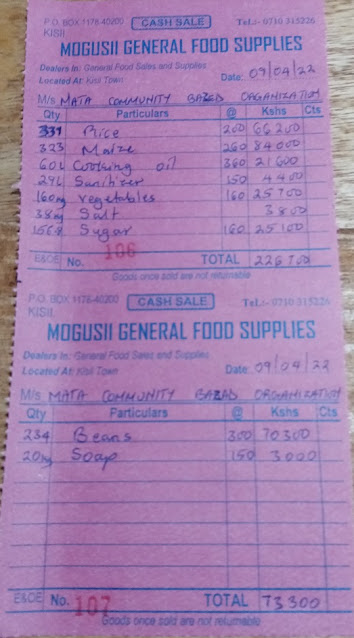 P.O. BOX 1178-40200 CASH SALE Tel.:- 0710 315226
KISII
MOGUSII GENERAL FOOD SUPPLIES
Dealers In: General Food Sales and Supplies
Located At: Kisii Town Date: 09/04/22
M/s MATA COMMUNITY BAZED ORGANIZATION
Qty Particulars @ Kshs Cts
331 Rice 200 66200
323 Maize 260 84000
60L Cooking oil 360 21600
29L Sanitizer 150 4400
160kg vegetables 160 25700
38kg Salt 3800
Sugar 160 25100
E&OE No. 106 TOTAL 226700
Goods once sold are not returnable
P.O. BOX 1178-40200 CASH SALE Tel.:- 0710 315226
KISII
MOGUSII GENERAL FOOD SUPPLIES
Dealers In: General Food Sales and Supplies
Located At: Kisii Town Date: 09/04/22
M/s MATA COMMUNITY BAZED ORGANIZATION
Qty Particulars @ Kshs Cts
234 Beans 300 70300
20kg Soap 150 3000
E&OE No. 107 TOTAL 73300
Goods once sold are not returnable